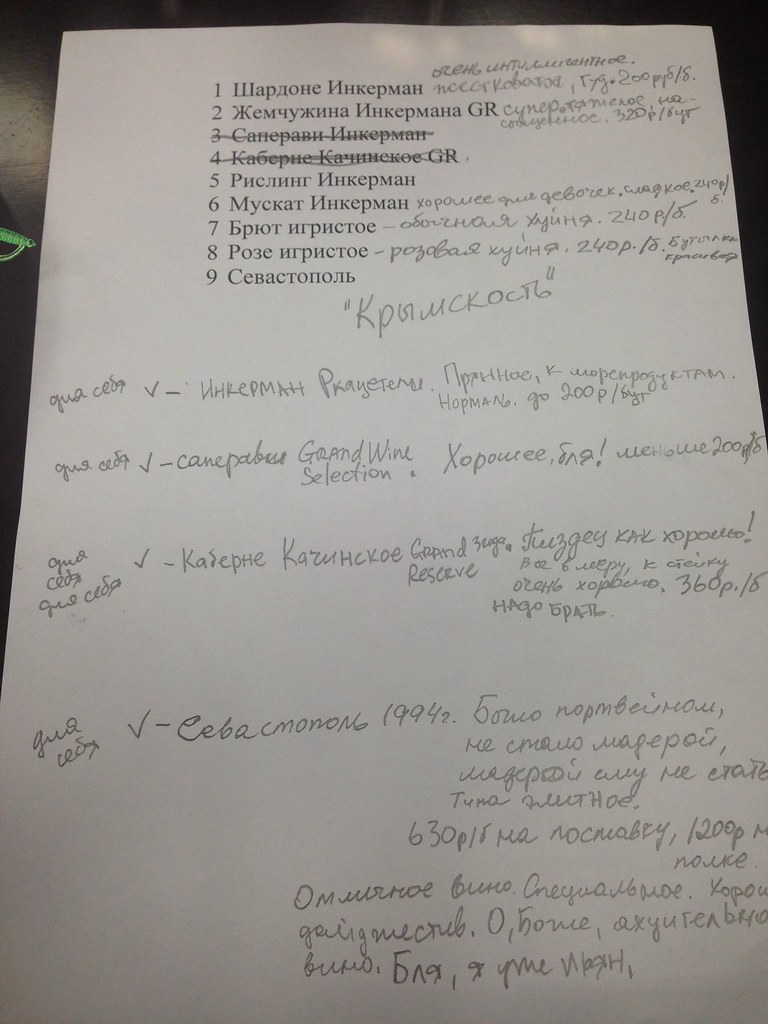 очень интиллигентное.
1 Шардоне Инкерман жестковатое, гуд. 200руб/б.
2 Жемчужина Инкермана GR супер, тяжелое, на-
сыщенное. 320р/бут
3 Саперави Инкерман
4 Каберне Качинское GR
5 Рислинг Инкерман
6 Мускат Инкерман хорошее для девочек. сладкое. 240р/
б.
7 Брют игристое – обычная хуйня. 240р/б.
8 Розе игристое – розовая хуйня. 240р./б. Бутылка
красивая
9 Севастополь
"Крымскость"
для себя √ – Инкерман Ркацетели. Прянное, к морепродуктам.
Нормаль. до 200р/бут
для себя √ – саперави Grand Wine Хорошее, бля! меньше 200р/б
Selection.
для себя √ – Каберне Качинское Grand Пиздец как хорошо!
Reserve Все в меру, к стейку
для себя очень хорошо. 360р./б
надо брать.
для себя √ – Севастополь 1994г. Было портвейном,
не стало мадерой,
мадерой ему не стать
Типа элитное.
630р/б на поставку, 1200р
полке.
Отличное вино. Специальное.
дайджестив. О, Боже, ахуительно
вино. Бля, я уже пьян,